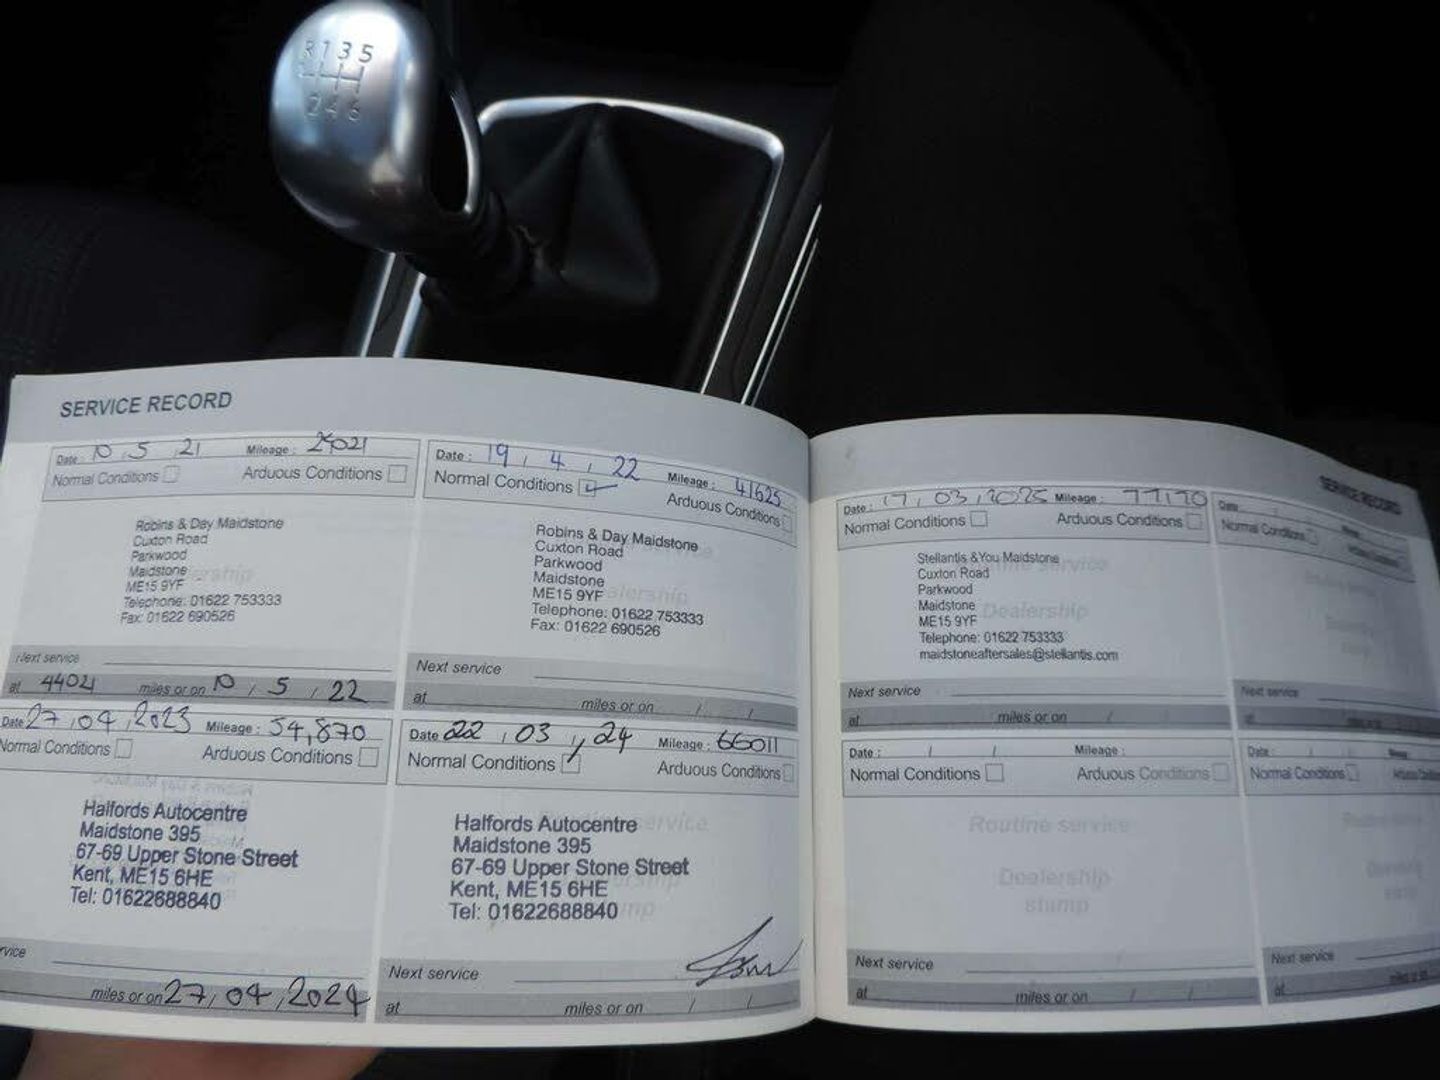 R 1 3 5
2 4 6
SERVICE RECORD
Date 10 , 5 , 21 Mileage :
Normal Conditions Arduous Conditions
Robins & Day Maidstone
Cuxton Road
Parkwood
Maidstone
ME15 9YF
Telephone: 01622 753333
Fax: 01622 690526
Next service
at 44021 miles or on 10 / 5 / 22
Date : 19 , 4 , 22 Mileage : 41625
Normal Conditions Arduous Conditions
Robins & Day Maidstone
Cuxton Road
Parkwood
Maidstone
ME15 9YF
Telephone: 01622 753333
Fax: 01622 690526
Next service
at miles or on / /
Date 27 , 04 , 2023 Mileage : 54,870
Normal Conditions Arduous Conditions
Halfords Autocentre
Maidstone 395
67-69 Upper Stone Street
Kent, ME15 6HE
Tel: 01622688840
rvice
miles or on 27 , 04 , 2024
Date 22 , 03 , 24 Mileage : 66011
Normal Conditions Arduous Conditions
Halfords Autocentre
Maidstone 395
67-69 Upper Stone Street
Kent, ME15 6HE
Tel: 01622688840
Next service
at miles or on / /
SERVICE RECORD
Date : 17 , 03 , 2025 Mileage : 77170
Normal Conditions Arduous Conditions
Routine service
Dealership
Stellantis &You Maidstone
Cuxton Road
Parkwood
Maidstone
ME15 9YF
Telephone: 01622 753333
maidstoneaftersales@stellantis.com
Next service
at miles or on /
Date :
Normal Conditions
Next service
at
Date : / / Mileage :
Normal Conditions Arduous Conditions
Routine service
Dealership
stamp
Next service
at miles or on / /
Date : / /
Normal Conditions
Next service
at